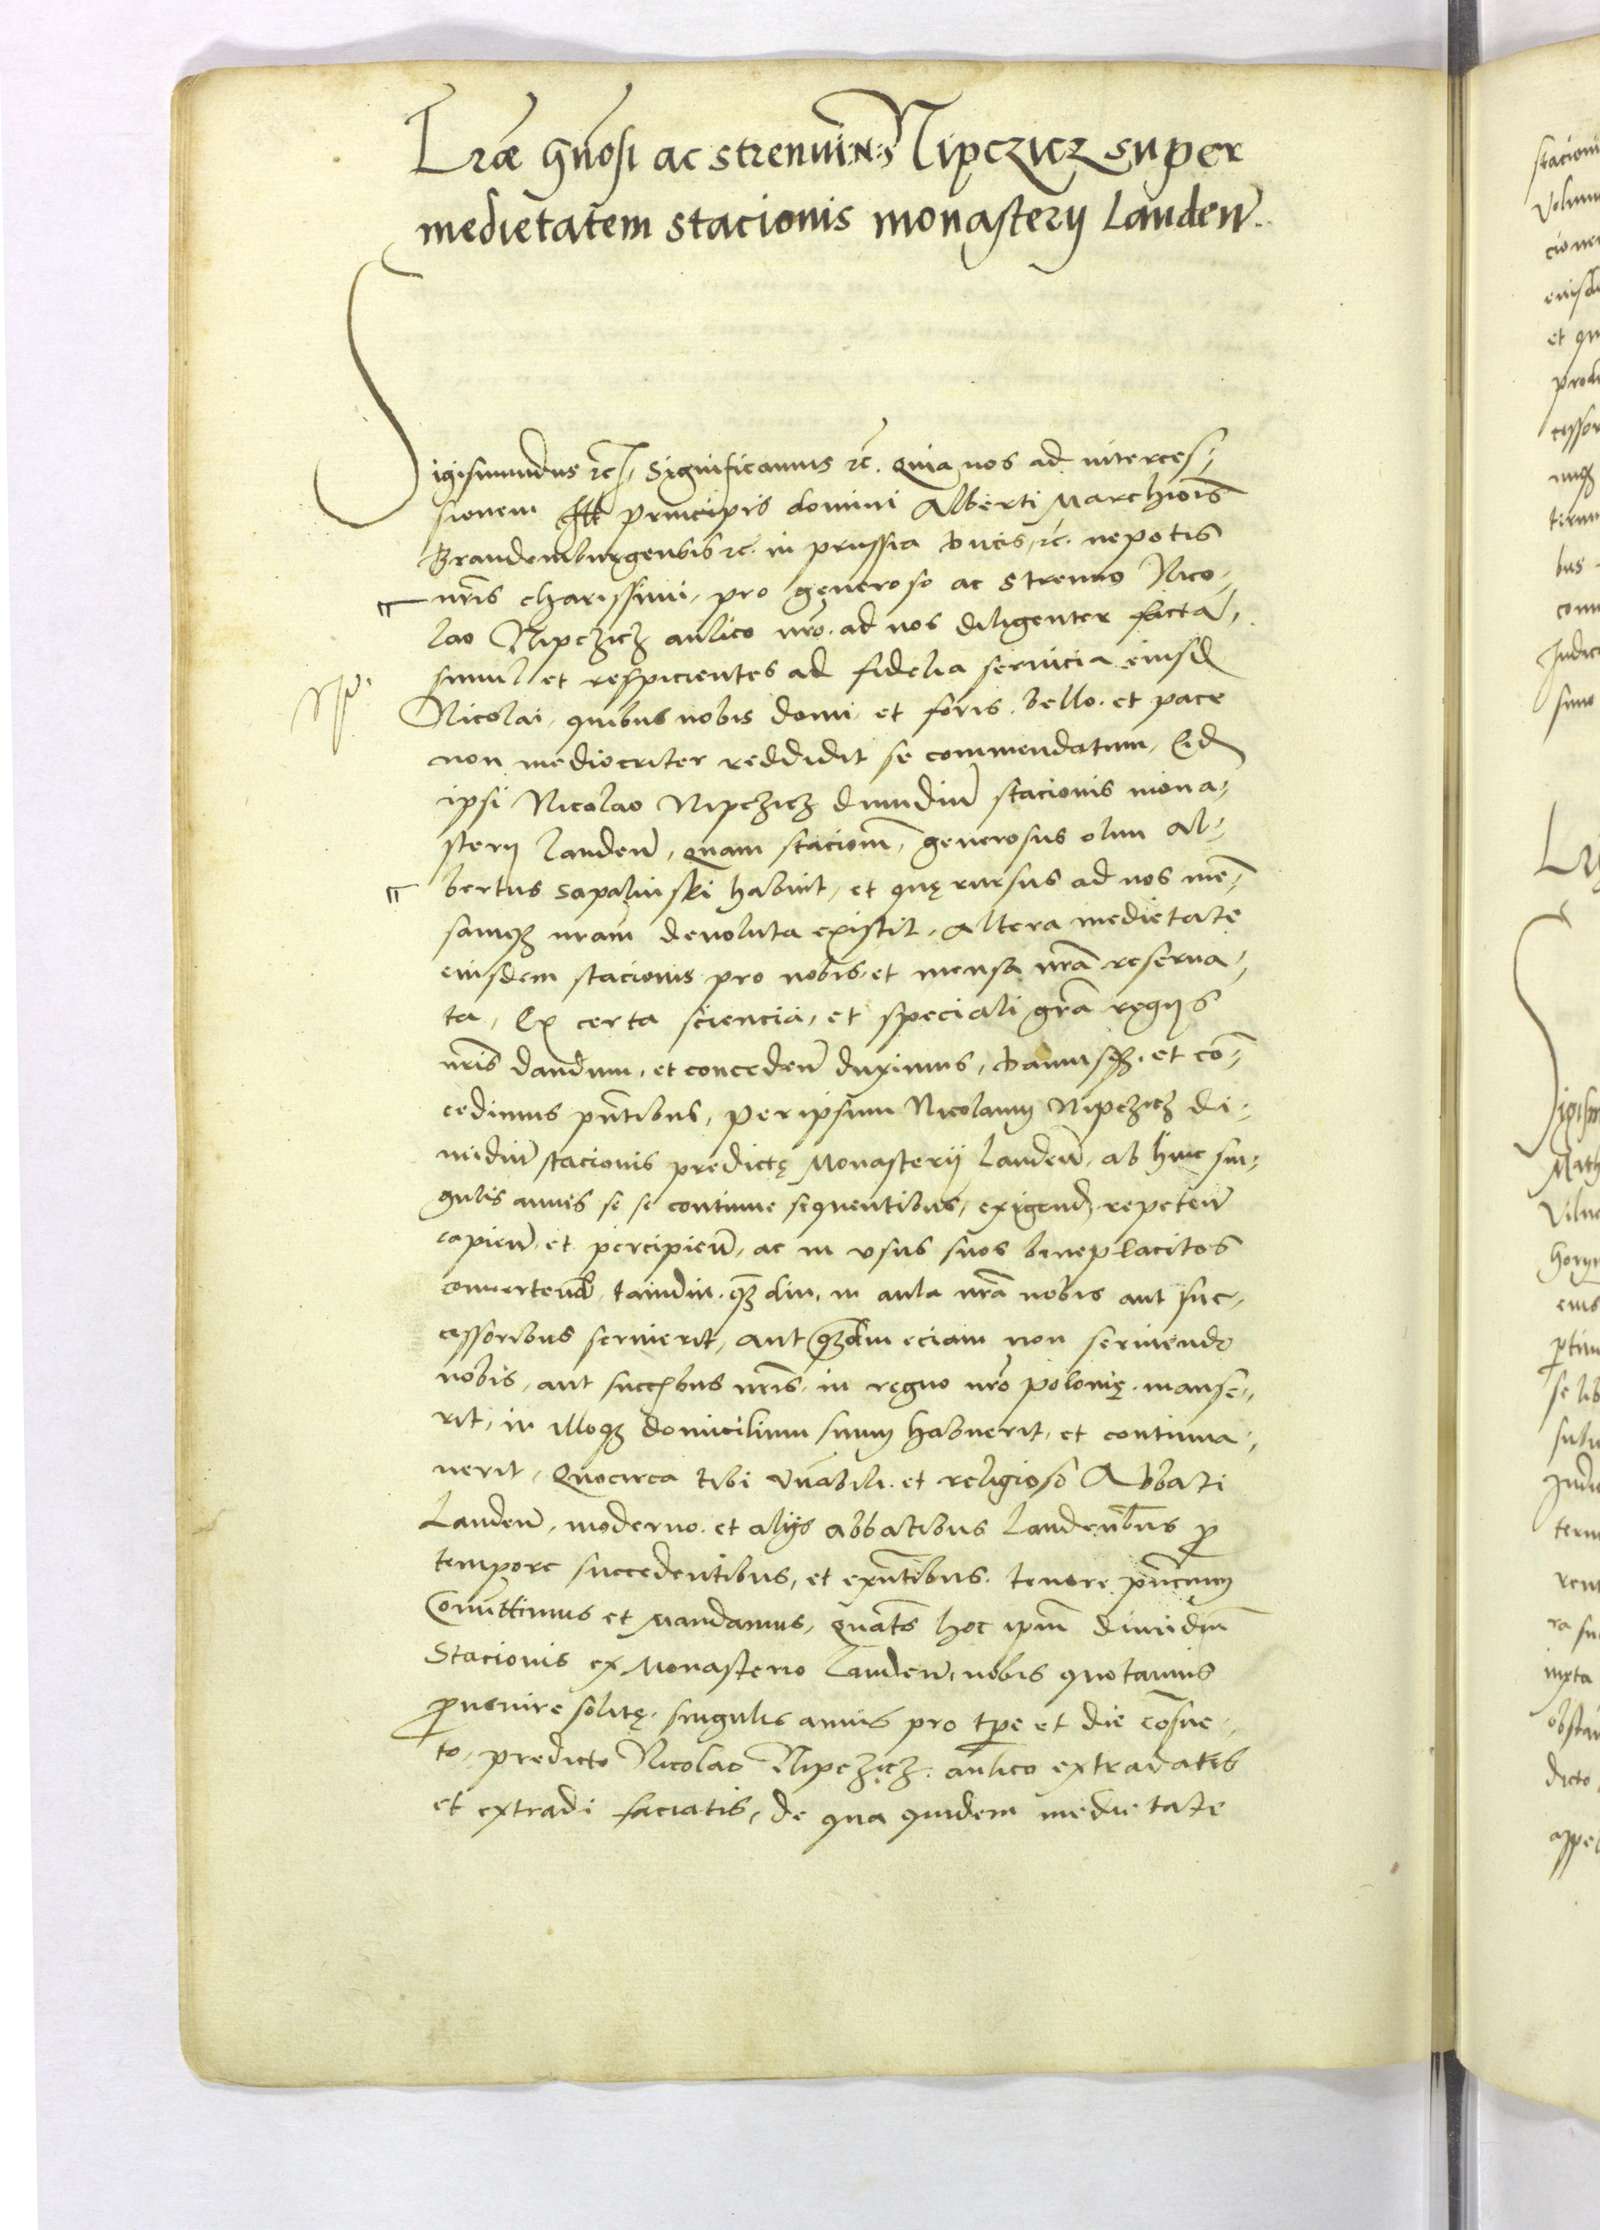 Lrae gnosi ac strenui N: Nipczicz super
medietatem stacionis monasterij Landen̄.
Sigismundus rc̄. Significamus rc̄. Quia nos ad interces⸗
sionem Ill principis domini Alberti Marchiois
Brandemburgensis rc̄. in prussia ducis, rc̄. nepotis
nr̄is charissimi, pro generoso ac strenuo Nico⸗
lao Nipczicz aulico nr̄o. ad nos diligenter facta⸗
simul et respicientes ad fidelia seruicia eiusd
Nicolai, quibus nobis domi, et foris. bello. et pace
non mediocriter reddidit se commendatum, Eid
ipsi Nicolao Nipczicz dimidiū stacionis mona⸗
sterij Landen̄, quam stacionē, generosus olim Al⸗
bertus Sapalinski habuit, et quę rursus ad nos men̄⸗
samqȝ nram̄ deuoluta existit, altera medietate
eiusdem stacionis pro nobis, et mensa nr̄a reserua⸗
ta, Ex certa sciencia, et speciali gra̅ regijs
nr̄is dandum, et conceden̄ duximus, damusqȝ. et con̄⸗
cedimus pn̄tibus, per ipsum Nicolaum Nipczicz di⸗
midiū stacionis predictę Monasterij Landen̄, ab hinc sin⸗
gulis annis se se continue sequentibus, exigend, repeten̄
capien̄, et percipien̄, ac in vsus suos beneplacitos
conuertend, tamdiu. qȝdiu, in aula nr̄a nobis aut suc⸗
cessoribus seruierit, aut qȝdiu eciam non seruiendo
nobis, aut succ̄bus nr̄is, in regno nr̄o polonię. manse⸗
rit, in illoqȝ domicilium suum habuerit, et continua⸗
uerit, Quocirca tibi vn̄abili. et religioso Abbati
Landen̄, moderno. et alijs abbatibus Landen̄bus p
tempore succedentibus, et exn̄tibus. tenore pn̄cium
Comittimus et Mandamus, quatn̄s hoc ipm̄ dimidiū
Stacionis ex Monasterio Landen̄, nobis quotannis
puenire solitę, singulis annis pro tpe et die cōsue⸗
to, predicto Nicolao Nipczicz. aulico extradatis
et extradi faciatis, de qua quidem medietate